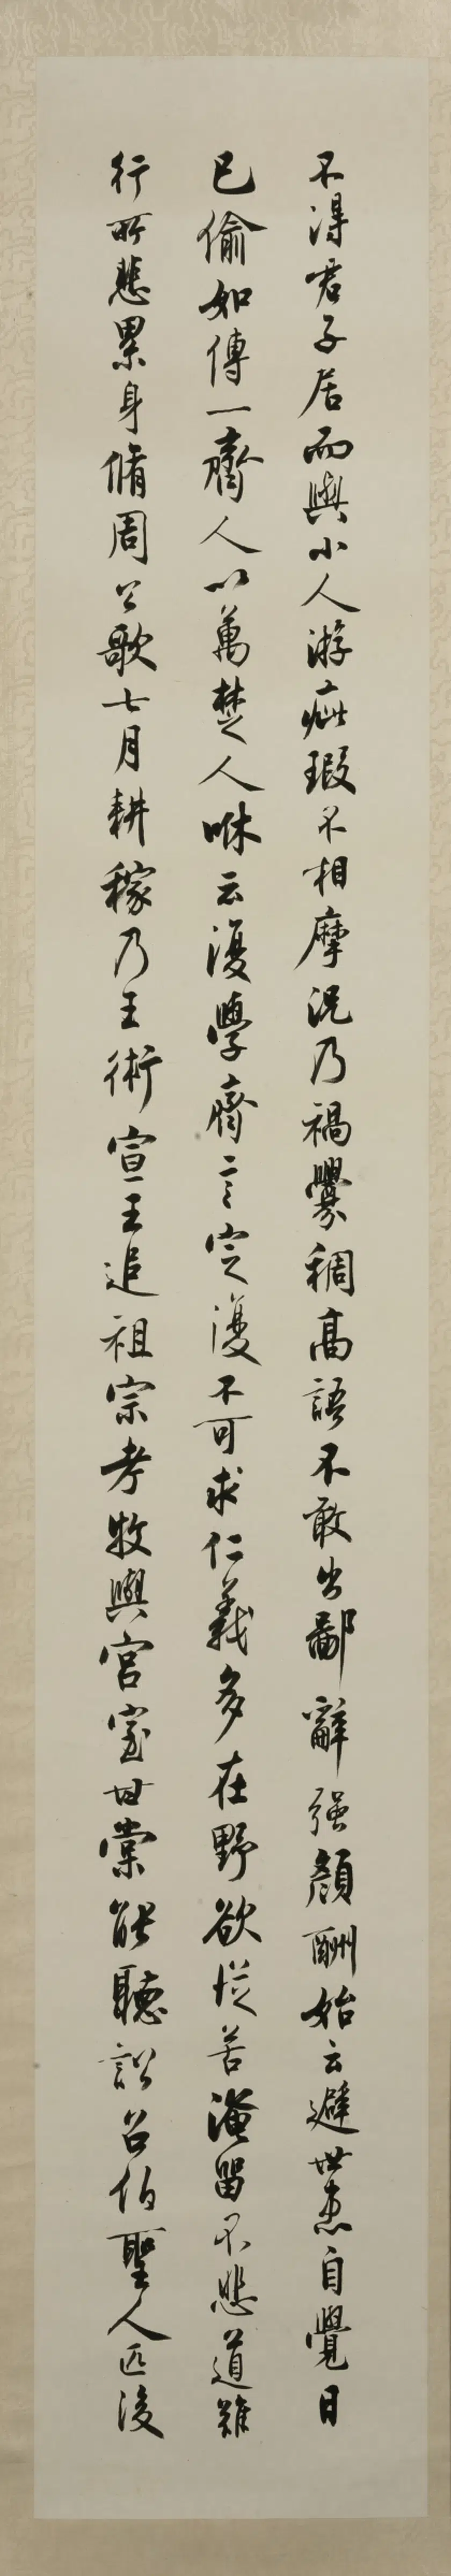 不得君子居而與小人游疵瑕不相摩况乃禍釁稠高語不敢出鄙辭强顔酬始云避世患自覺日
已偷如傅一齊人以萬楚人咻云復學齊言定復不可求仁義多在野欲從苦淹留不悲道難
行所悲累身脩周公歌七月耕稼乃王術宣王追祖宗考牧與宫室甘棠能聽訟召伯聖人匹後